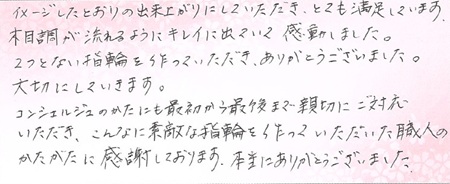 イメージしたとおりの出来上がりにしていただき、とても満足しています。
木目調が流れるようにキレイに出ていて感動しました。
2つとない指輪を作っていただき、ありがとうございました。
大切にしていきます。
コンシェルジュのかたにも最初から最後まで親切にご対応
いただき、こんなに素敵な指輪を作っていただいた職人の
かたがたに感謝しております。本当にありがとうございました。